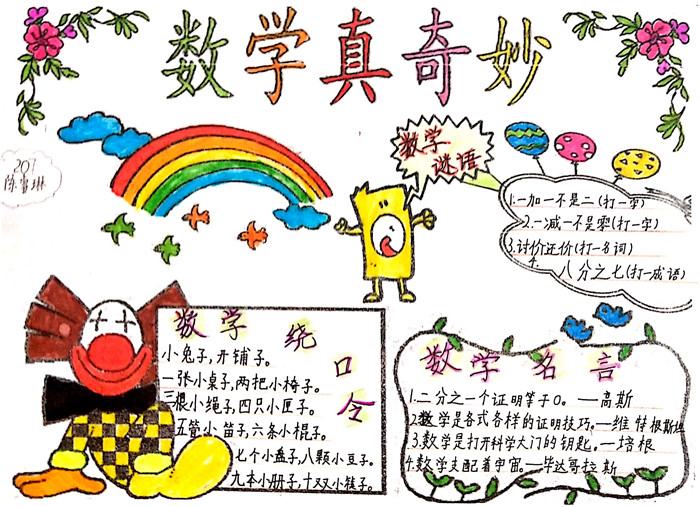 数学真奇妙
207
陈雪琳
数学
谜语
1.一加一不是二(打一字)
2.一减一不是零(打一字)
3.讨价还价(打一名词)
4.八分之七(打一成语)
数学绕口令
小兔子,开铺子。
一张小桌子,两把小椅子。
三根小绳子,四只小匣子。
五管小笛子,六条小棍子。
七个小盘子,八颗小豆子。
九本小册子,十双小筷子。
数学名言
1.二分之一个证明等于0。—高斯
2.数学是各式各样的证明技巧。—维特根斯坦
3.数学是打开科学大门的钥匙。—培根
4.数学支配着宇宙。—毕达哥拉斯